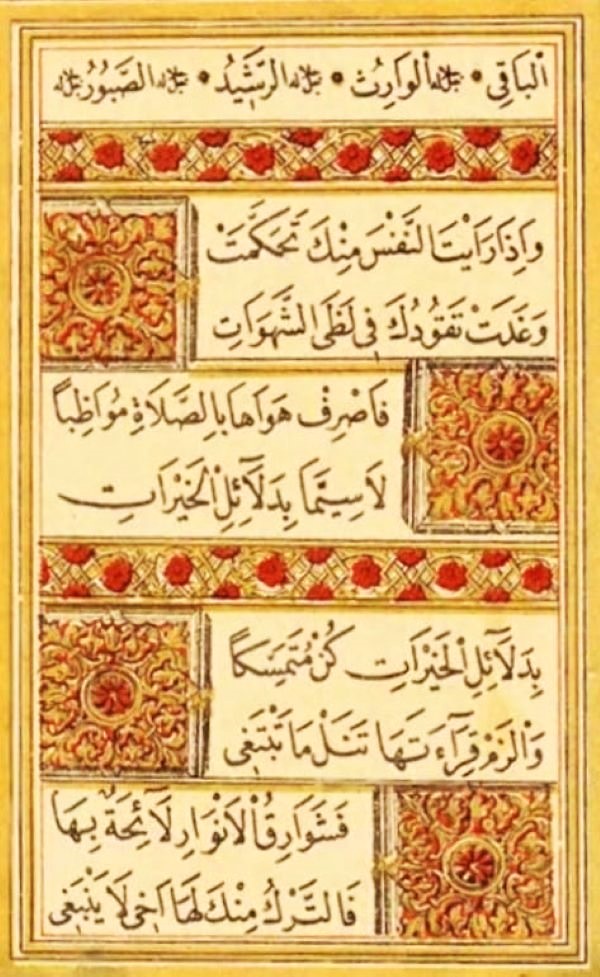 اَلْبَاقِي جل جلاله اَلْوَارِثُ جل جلاله الرَّشَيِدُ جل جلاله الصَّبُورُ جل جلاله
وَاِذَا رَاَيْتَ النَّفْسَ مِنْكَ تَحَكَّمَتْ
وَغَدَتْ تَقُودُكَ فِي لَظَى الشَّهَوَاتِ
فَاصْرِفْ هَوَاهَا بِالصَّلَاةِ مُوَاظِبًا
لَا سِيَّمَا بِدَلَآئِلِ الْخَيْرَاتِ
بِدَلَآئِلِ الْخَيْرَاتِ كُنْ مُتَمَسِّكًا
وَالْزَمْ قِرَآءَتَهَا تَنَلْ مَا تَبْتَغِي
فَشَوَارِقُ الْاَنْوَارِ لَآئِحَةٌ بِهَا
فَالتَّرْكُ مِنْكَ لَهَا اَخِي لَا يَنْبَغِي